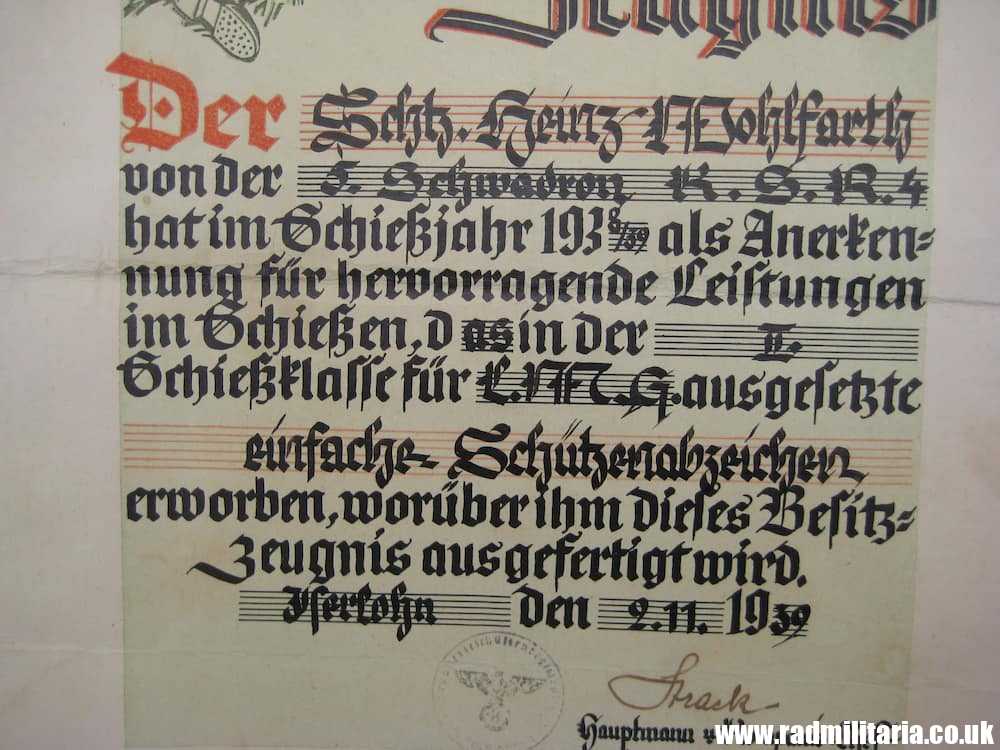 Zeugnis
Der Schtz. Heinz Wohlfarth
von der 5. Schwadron K.S.R.4
hat im Schießjahr 1938/39 als Anerken=
nung für hervorragende Leistungen
im Schießen, das in der II.
Schießklasse für L.M.G. ausgesetzte
einfache Schützenabzeichen
erworben, worüber ihm dieses Besitz=
zeugnis ausgefertigt wird.
Iserlohn den 2.11. 1939
Strack
Hauptmann
www.radmilitaria.co.uk